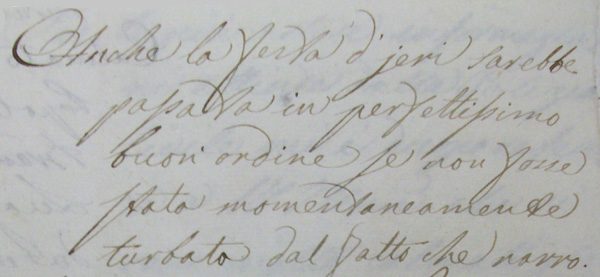 Anche la festa d'jeri sarebbe
passata in perfettissimo
buon ordine se non fosse
stata momentaneamente
turbato dal fatto che narro.